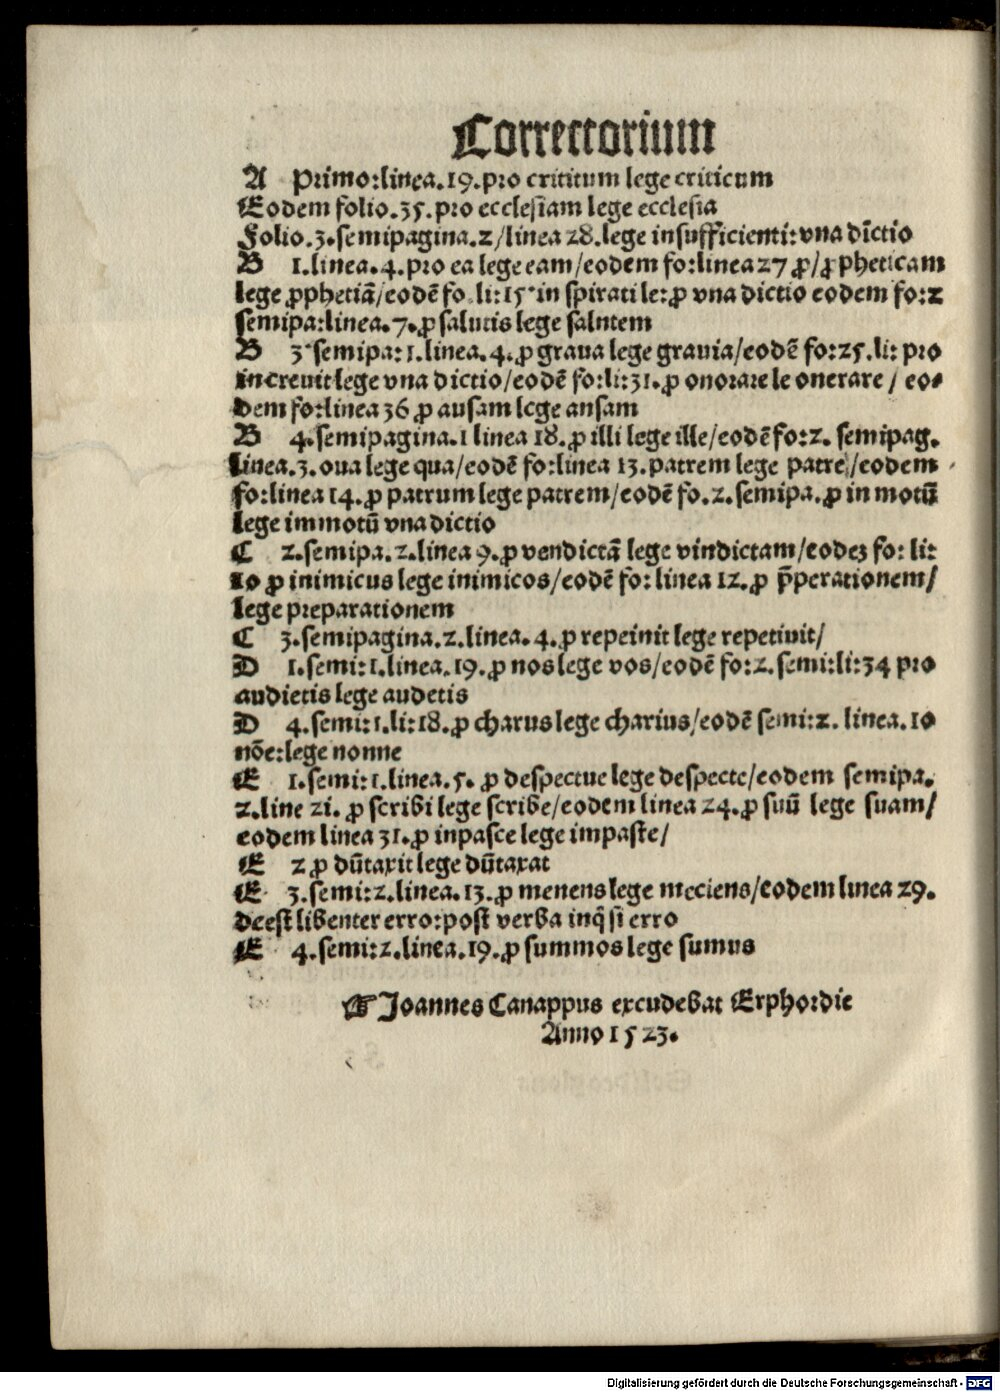 Correctorium
A primo:linea.19.pro crititum lege criticum
Eodem folio.35.pro ecclesiam lege ecclesia
Folio.3.semipagina.2/linea 28.lege insufficienti:vna dictio
B 1.linea.4.pro ea lege eam/eodem fo:linea 27 ꝓ/ꝓpheticam
lege ꝓphetiā/eodē fo li:15 in spirati le:ꝓ vna dictio eodem fo:2
semipa:linea.7.ꝓ salutis lege salntem
B 3 semipa:1.linea.4.ꝓ graua lege grauia/eodē fo:25.li: pro
increuit lege vna dictio/eodē fo:li:31.ꝓ onorare le onerare / eo⸗
dem fo:linea 36 ꝓ ausam lege ansam
B 4.semipagina.1 linea 18.ꝓ illi lege ille/eodē fo:2. semipag.
linea.3.oua lege qua/eodē fo:linea 13.patrem lege patre/eodem
fo:linea 14.ꝓ patrum lege patrem/eodē fo.2.semipa.ꝓ in motū
lege immotū vna dictio
C 2.semipa.2.linea 9.ꝓ vendictā lege vindictam/eodeꝫ fo: li:
10 ꝓ inimicus lege inimicos/eodē fo: linea 12.ꝓ p̄perationem/
lege preparationem
C 3.semipagina.2.linea.4.ꝓ repeinit lege repetiuit/
D 1.semi:1.linea.19.ꝓ nos lege vos/eodē fo:2.semi:li:34 pro
audietis lege audetis
D 4.semi:1.li:18.ꝓ charus lege charius/eodē semi:2. linea.10
nōe:lege nonne
E 1.semi:1.linea.5. ꝓ despectue lege despecte/eodem semipa.
2.line 21. ꝓ scribi lege scribe/eodem linea 24.ꝓ suū lege suam/
eodem linea 31.ꝓ inpasce lege impaste/
E 2 ꝓ dūtaxit lege dūtaxat
E 3.semi:2.linea.13.ꝓ menens lege meciens/eodem linea 29.
deest libenter erro:post verba inq̄ si erro
E 4.semi:2.linea.19.ꝓ summos lege sumus
☞Joannes Canappus excudebat Erphordie
Anno 1523.
Digitalisierung gefördert durch die Deutsche Forschungsgemeinschaft - DFG